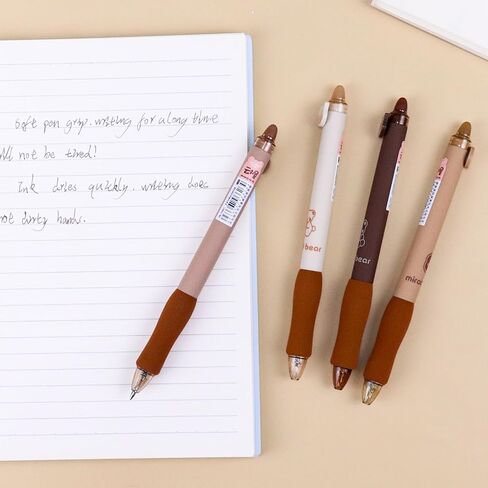 Soft pen grip. writing for a long time
will not be tired!
Ink dries quickly. writing does
not dirty hands.
bear
bear